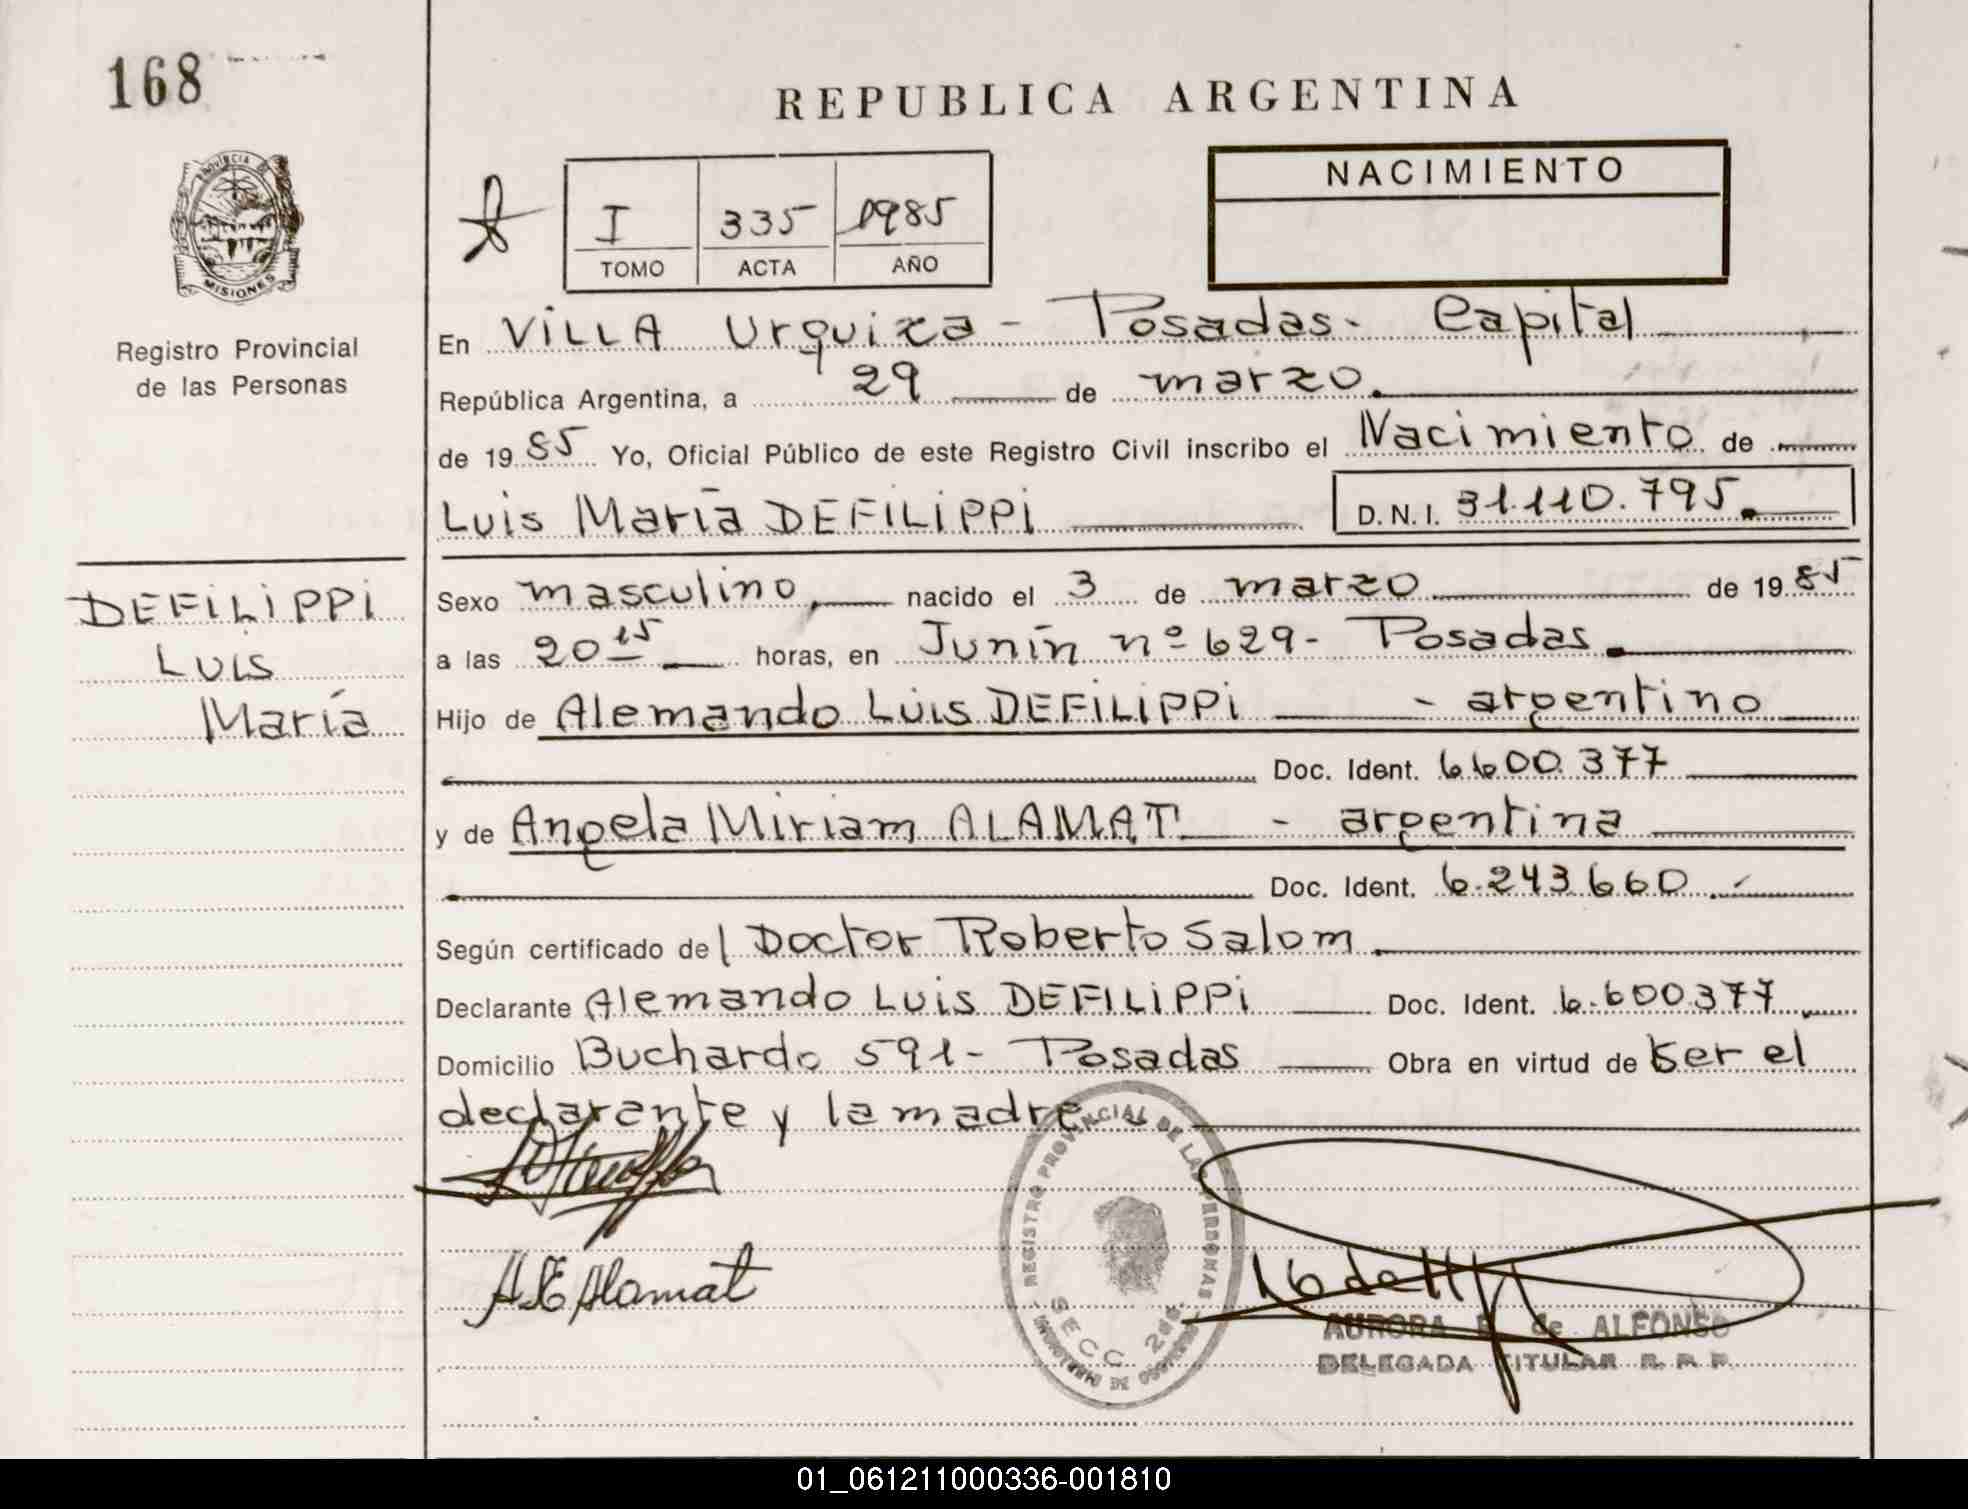 168
REPUBLICA ARGENTINA
PROVINCIA DE
MISIONES
Registro Provincial
de las Personas
I 335 1985
TOMO ACTA AÑO
NACIMIENTO
En VILLA Urquiza - Posadas - Capital
República Argentina, a 29 de marzo.
de 1985 Yo, Oficial Público de este Registro Civil inscribo el Nacimiento de
Luis María DEFILIPPI D.N.I. 31.110.795.
DEFILIPPI
Luis
María
Sexo masculino, nacido el 3 de marzo de 1985
a las 20 15 horas, en Junín nº 629 - Posadas.
Hijo de Alemando Luis DEFILIPPI - argentino
Doc. Ident. 6600.377
y de Angela Miriam ALAMAT - argentina
Doc. Ident. 6.243.660.-
Según certificado del Doctor Roberto Salom.
Declarante Alemando Luis DEFILIPPI Doc. Ident. 6.600.377.
Domicilio Buchardo 591 - Posadas Obra en virtud de ser el
declarante y la madre
REGISTRO PROVINCIAL DE LAS PERSONAS
SECC. 2da.
A.E Alamat
AURORA de ALFONSO
DELEGADA TITULAR R. P. P.
01_061211000336-001810